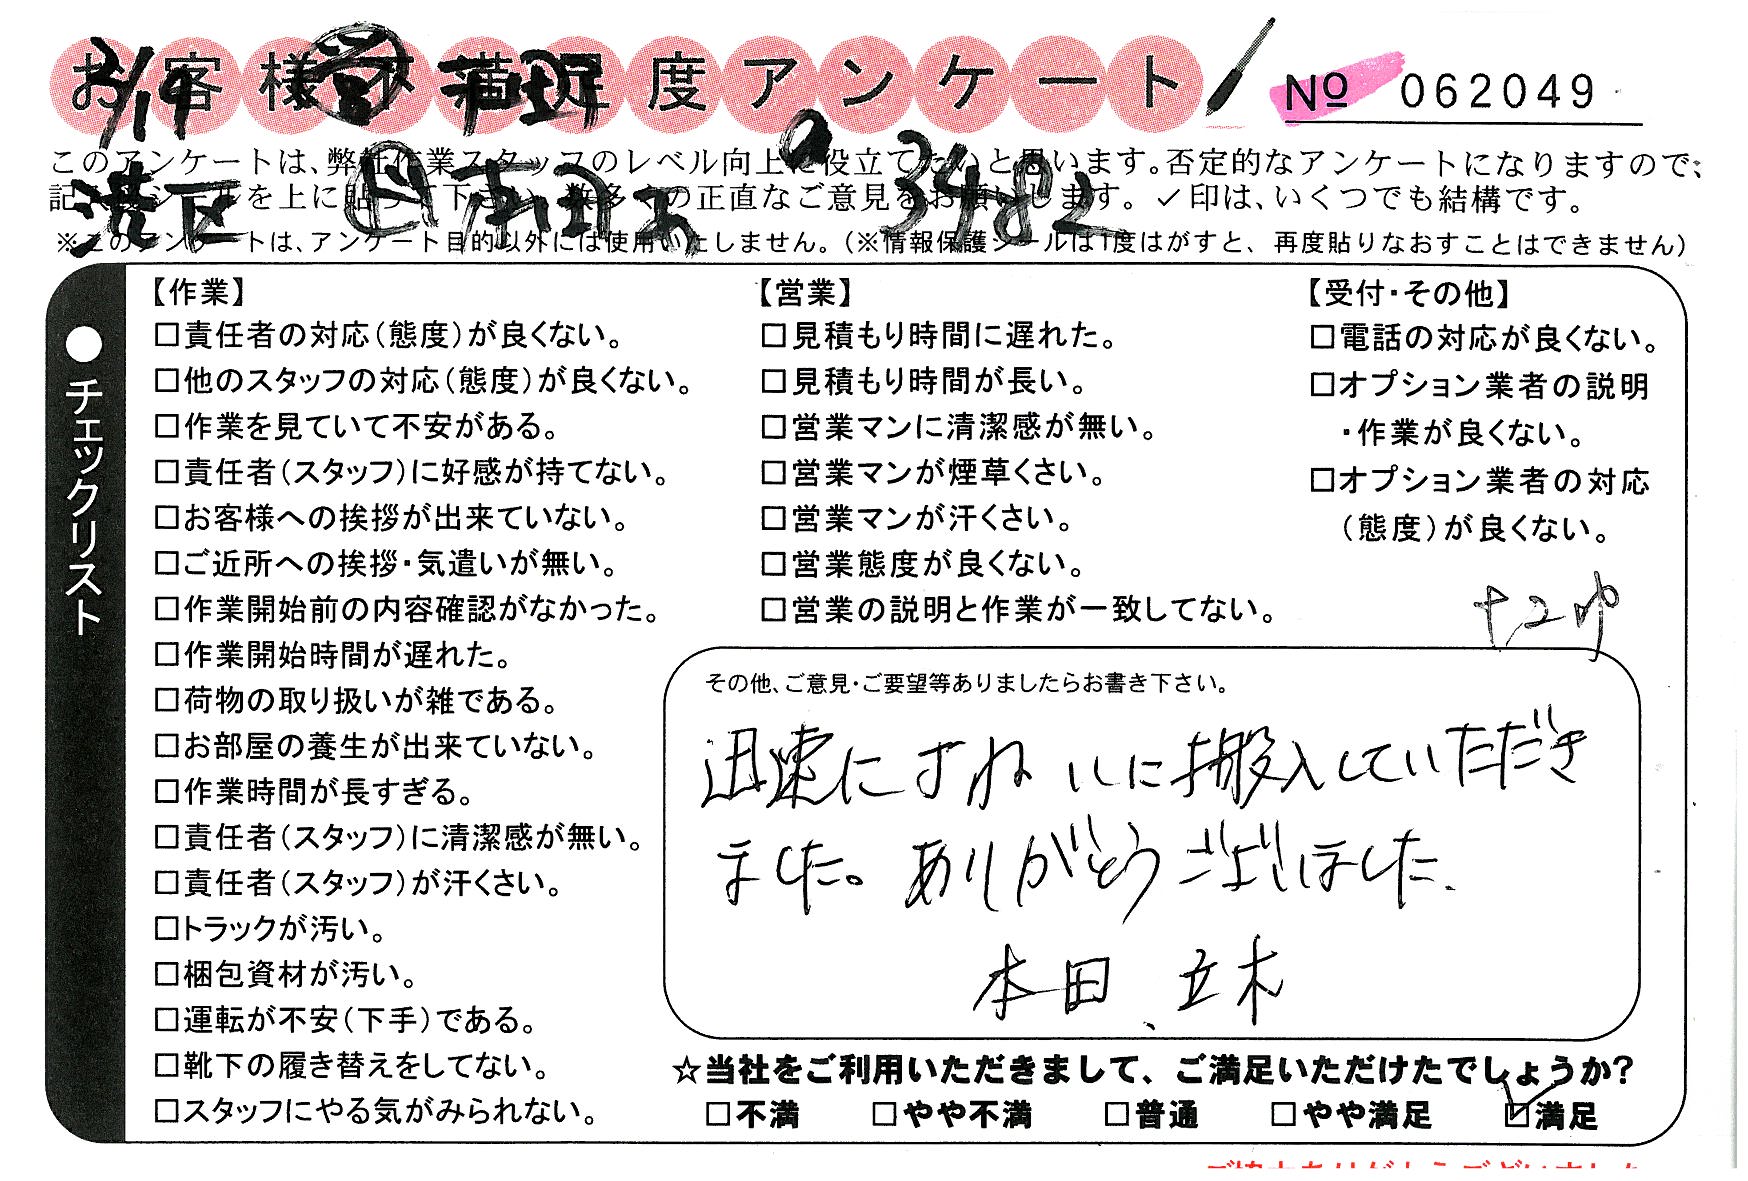 お客様不満足度アンケート
No 062049
3/19
このアンケートは、弊社作業スタッフのレベル向上に役立てたいと思います。否定的なアンケートになりますので、
記 シールを上に貼って下さい。数多くの正直なご意見をお願いします。✓印は、いくつでも結構です。
港区 3482
※このアンケートは、アンケート目的以外には使用いたしません。(※情報保護シールは1度はがすと、再度貼りなおすことはできません)
●チェックリスト
【作業】
□責任者の対応(態度)が良くない。
□他のスタッフの対応(態度)が良くない。
□作業を見ていて不安がある。
□責任者(スタッフ)に好感が持てない。
□お客様への挨拶が出来ていない。
□ご近所への挨拶・気遣いが無い。
□作業開始前の内容確認がなかった。
□作業開始時間が遅れた。
□荷物の取り扱いが雑である。
□お部屋の養生が出来ていない。
□作業時間が長すぎる。
□責任者(スタッフ)に清潔感が無い。
□責任者(スタッフ)が汗くさい。
□トラックが汚い。
□梱包資材が汚い。
□運転が不安(下手)である。
□靴下の履き替えをしてない。
□スタッフにやる気がみられない。
【営業】
□見積もり時間に遅れた。
□見積もり時間が長い。
□営業マンに清潔感が無い。
□営業マンが煙草くさい。
□営業マンが汗くさい。
□営業態度が良くない。
□営業の説明と作業が一致してない。
【受付・その他】
□電話の対応が良くない。
□オプション業者の説明
・作業が良くない。
□オプション業者の対応
(態度)が良くない。
その他、ご意見・ご要望等ありましたらお書き下さい。
迅速にていねいに搬入していただき
ました。ありがとうございました。
本田、立木
☆当社をご利用いただきまして、ご満足いただけたでしょうか?
□不満 □やや不満 □普通 □やや満足 ☑満足
ご協力ありがとうございました